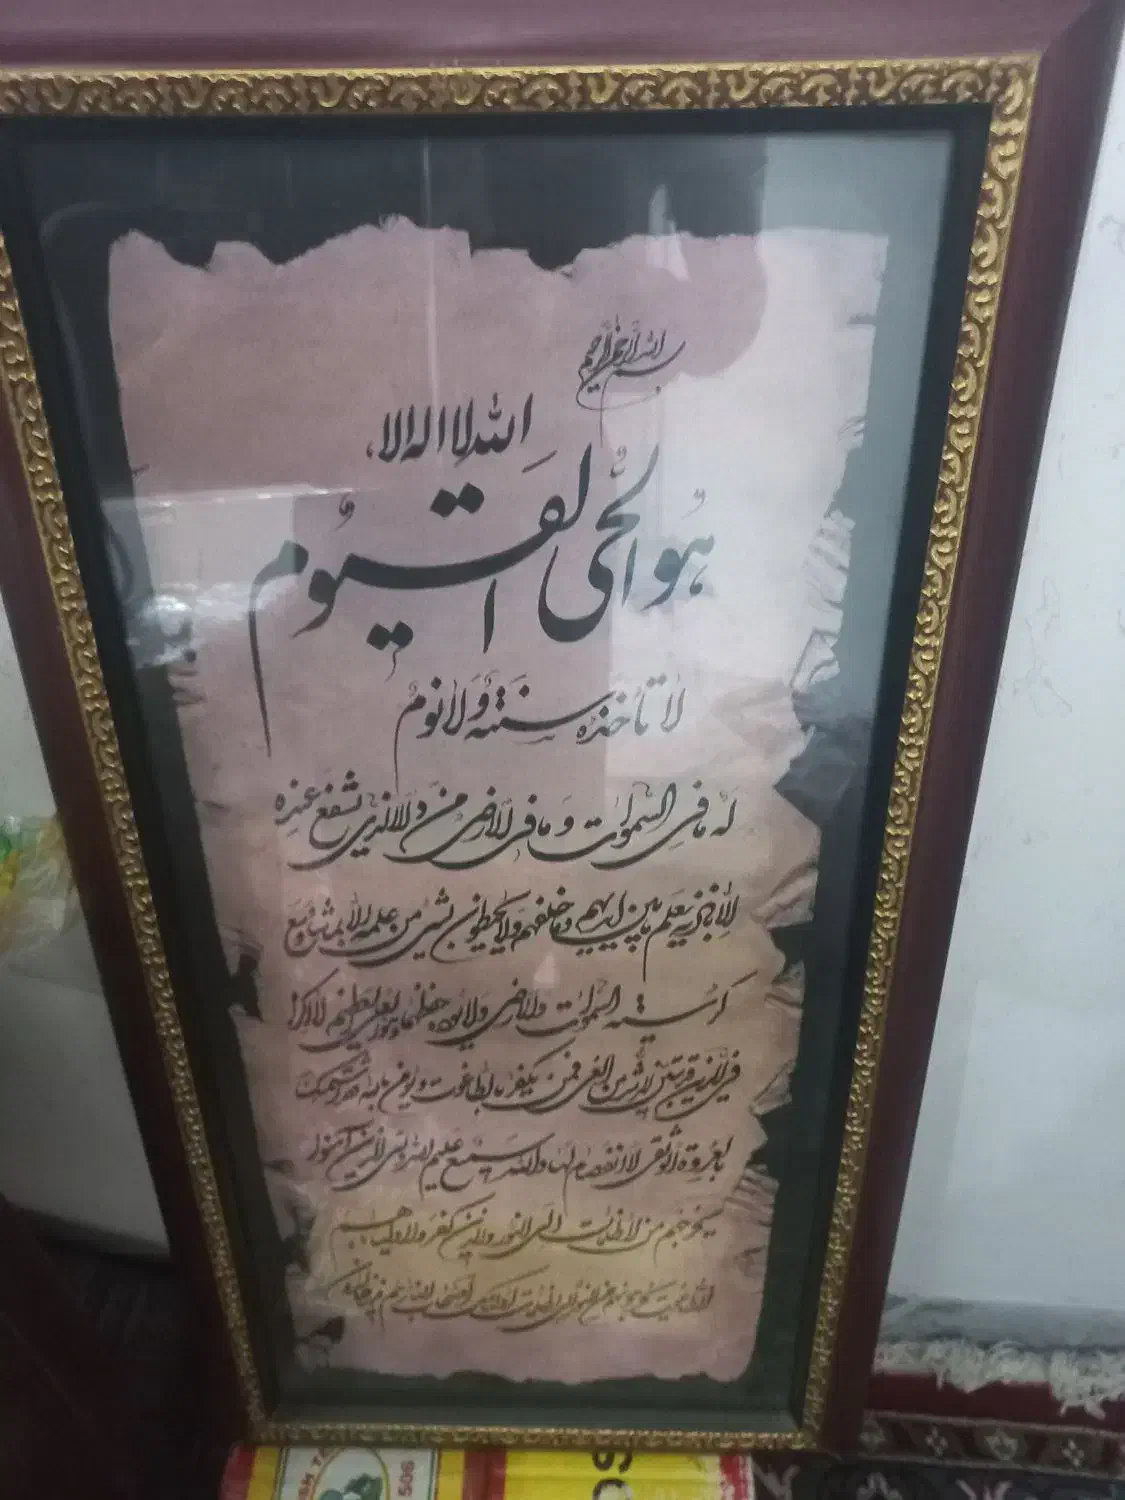 بسم الله الرحمن الرحیم
الله لا اله الا
هُو الحی القیوم
لا تأخذه سنته ولا نوم
له ما فی السموات و ما فی الارض من ذالذی یشفع عنده
الا باذنه یعلم ما بین ایدیهم وما خلفهم ولا یحیطون بشئ من علمه الا بما شا وسع
کرسیه السموات والارض ولا یوده حفظهما وهو العلی العظیم لا اکراه
فی الدین قد تبین الرشد من الغی فمن یکفر بالطاغوت ویومن بالله فقد استمسک
بالعروة الوثقی لا انفصام لها والله سمیع علیم الله ولی الذین آمنوا
یخرجهم من الظلمات الی النور والذین کفروا اولیاهم
الطاغوت یخرجونهم من النور الی الظلمات اولئک اصحاب النار هم فیها
506